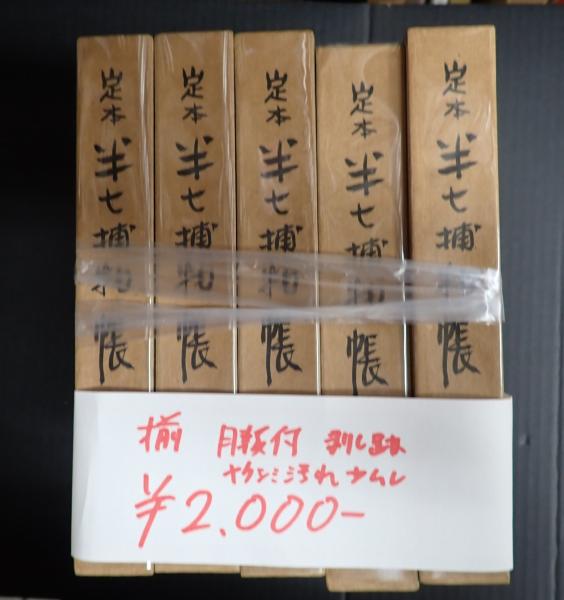 定本 半七捕物帳
定本 半七捕物帳
定本 半七捕物帳
定本 半七捕物帳
定本 半七捕物帳
揃 月報付 剥し跡
ヤケシミ汚れ少ムレ
¥2.000-